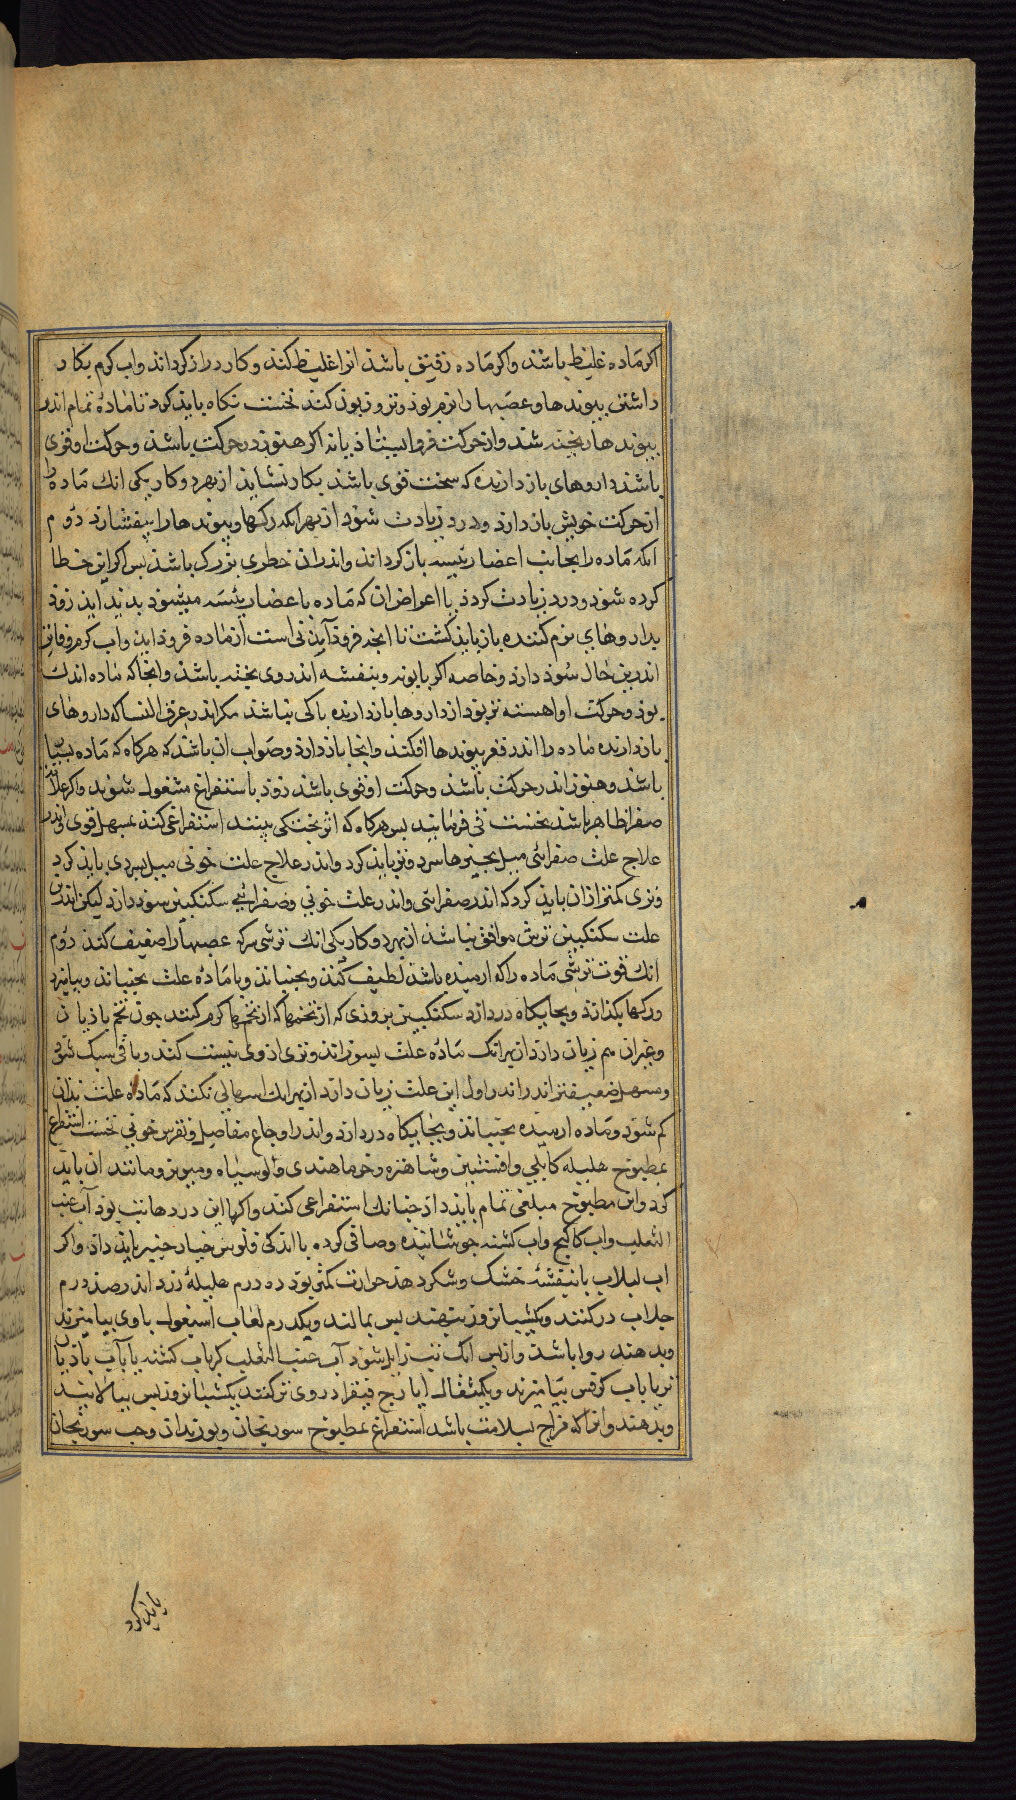 اکر مَاده غلیظ باشد واکر مَاده رقیق باشد انرا غلیظ کند وکار دراز کرداند واب کرم بکار
داشتن پیوندها وعصبها را نرم کند نخست نکاه باید کرد تا مادهٔ تمام اندر
پیوندها ریخته شد واز حرکت فرو ایستاذ یا نه اکر هنوز در حرکت باشد وحرکت او قوی
باشذ داروهای بازدارنده که سخت قوی باشد بکار نشاید از بهر دو کار یکی انك مَاده را
از حرکت خویش بازدارد ودرد زیادت شود از بهر انکه رکها وپیوندها را بیفشارد دوم
انکه مَاده را بجانب اعضاء رئیسه باز کرداند واندران خطری بزرک باشد پس اکر این خطا
کرده شود ودرد زیادت کردذ یا اعراض ان که مَاده باعضاء رئیسه میشود بدید اید زود
بداروهاى نرم کننده باز باید کشت تا انچه فروذ آمدنی است از ماده فروذ اید واب کرم وفاتر
اندرین حال سُوذ دارد وخاصه اکر بابونه وبنفشه اندر وی پخته باشد وانجا که مَاده اندك
بوذ وحرکت او اهسته تر بوذ از داروها بازدارنده باکی نباشد مکر اندر عرق النسا که داروهای
بازدارنده ماده را اندر قعر پیوندها افکند وانجا بازدارد وصواب ان باشد که هرکاه که مَاده بسیار
باشد وهنوز اندر حرکت باشد وحرکت او قوی باشد زوذ باستفراغ مشغول شوند واکر علامت
صفرا ظاهر باشد نخست قی فرمایند پس هرکاه که اثر پختکی بینند استفراغی کنند بمسهل قوی واندر
علاج علت صفرائی میل بچیزها سرد وتر باید کرد واندر علاج علت خونی میل بسردی باید کرد
وتری کمتر ازان باید کرد که اندر صفرائی واندر علت خونی وصفرائی سکنکبین سود دارد لیکن اندرین
علت سکنکبین ترش موافق نباشد از بهر دو کار یکی انك ترشی سرکه عصبها را ضعیف کند دوم
انك قوت ترشی مَاده را که ارمیده باشد لطیف کند وبجنباند وبا مَادهٔ علت بجنباند وبیامیزد
ورکها بکذارد وبجایکاه درد ارد سکنکبین بزوری که از تخمها که از تخمها کرم کنند چون تخم باذیان
وغیران هم زیان دارد از بهر انك مَادهٔ علت بسوزاند وتری از وی نیست کند وباقی سبک شود
ومسهل ضعیفتر اندر اول این علت زیان دارد از بهر انك اسهالی نکند که مَاده علت بدان
کم شود ومَاده ارمیده بجنباند وبجایکاه درد ارد واندر اوجاع مفاصل ونقرس خونی نخست استفراغ
بمطبوخ هلیله کابلی وافسنتین وشاهتره وخرما هندی والو سیاه ومویز ومانند ان باید
کرد واین مطبوخ مبلغی تمام باید داذ چنانك استفراغی کند واکر با این دردها تب بوذ آب عنب
الثعلب واب کاکنج واب کشنه جوشانیده وصافی کرده با اندکی فلوس خیار چنبر باید داذ واکر
اب لبلاب با بنفشهٔ خشک وشکر دهند حرارت کمتر بود ده درم هلیلهٔ زرد اندر صد درم
جلاب در کنند ویکشبانروز بنهند پس بمالند ویکدرم لعاب اسبغول با وی بیامیزند
وبدهند روا باشد واز پس انک تب زایل شود آب عنب الثعلب کر با اب کشنه یا با آب باذیان
تر یا با اب کرفس بیامیزند ویکمثقال ایارج فیقرا در وی تر کنند یکشبانروز پس بپالایند
وبدهند وانرا که مزاج بسلامت باشد استفراغ بمطبوخ سورنجان وبوزیدان وحب سورنجان
باید کرد